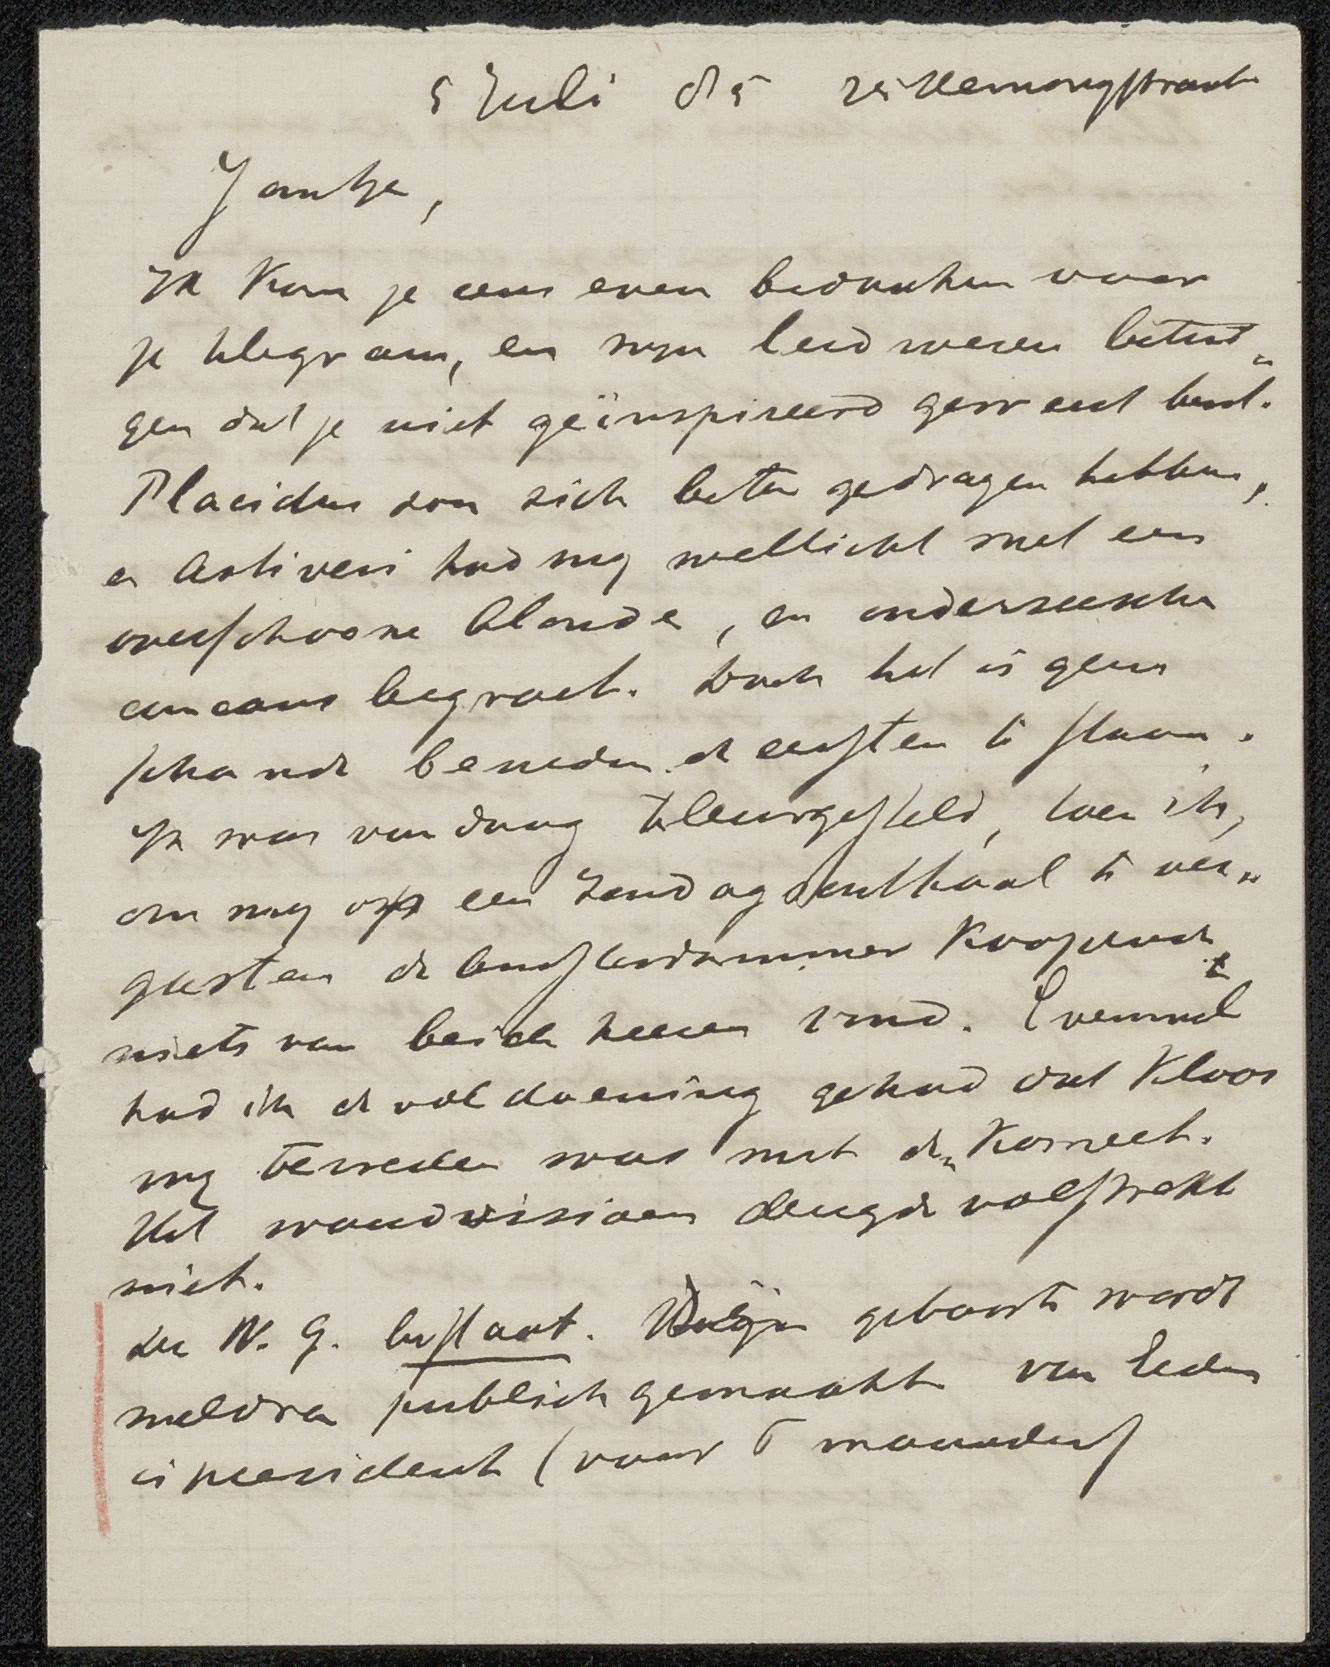 5 Juli 85
Jantje,
Ik kom je eens even bedanken voor
je telegram, en mijn leedwezen betui„
gen dat je niet geïnspireerd geweest bent.
Placidus zou zich beter gedragen hebben,
en had mij wellicht met een
overschoone blonde, en onderzeesche
cancans begroet. Doch het is geen
schande beneden de eersten te staan.
Ik was vandaag teleurgesteld, toen ik,
om mij op een Zondag onthaal te ver„
gasten de Amsterdammer koopende
niets van beide heeren vond. Evenwel
had ik de voldoening gehad dat Kloos
mij tevreden was met de
Het deugde volstrekt
niet.
De N. G. bestaat. Hudign geboorte wordt
weldra publiek gemaakt van Eeden
is president (voor 6 maanden)